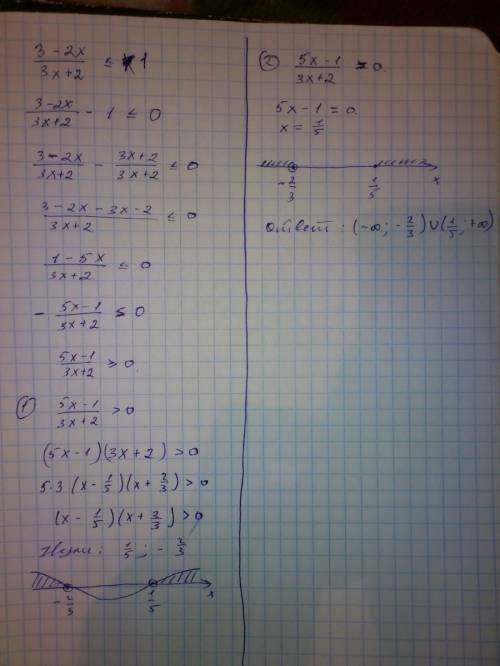 (3-2x)/(3x+2) ≤ 1
(3-2x)/(3x+2) - 1 ≤ 0
(3-2x)/(3x+2) - (3x+2)/(3x+2) ≤ 0
(3-2x-3x-2)/(3x+2) ≤ 0
(1-5x)/(3x+2) ≤ 0
- (5x-1)/(3x+2) ≤ 0
(5x-1)/(3x+2) ≥ 0
① (5x-1)/(3x+2) > 0
(5x-1)(3x+2) > 0
5·3 (x - 1/5)(x + 2/3) > 0
(x - 1/5)(x + 2/3) > 0
Нули: 1/5 ; - 2/3
-2/3 1/5 x
② (5x-1)/(3x+2) = 0.
5x-1 = 0
x = 1/5
-2/3 1/5 x
Ответ: (-∞; -2/3) ∪ (1/5; +∞)